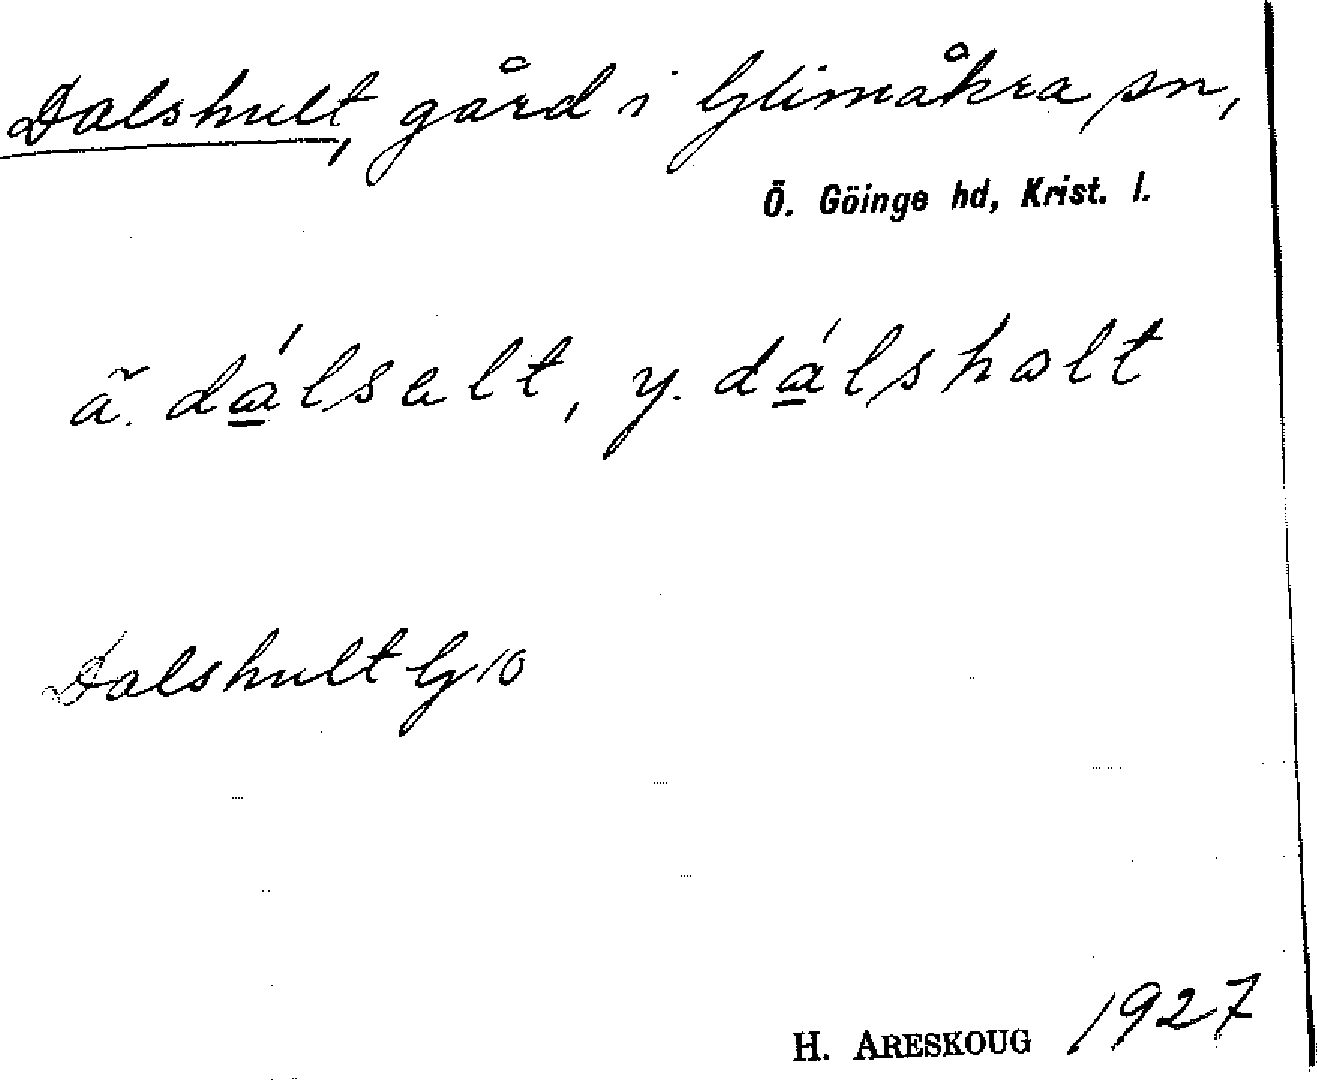 Dalshult, gård i Glimåkra sn,
Ö. Göinge hd, Krist. l.
ä. dálsalt, y. dálshalt
Dalshult G10
H. ARESKOUG 1927